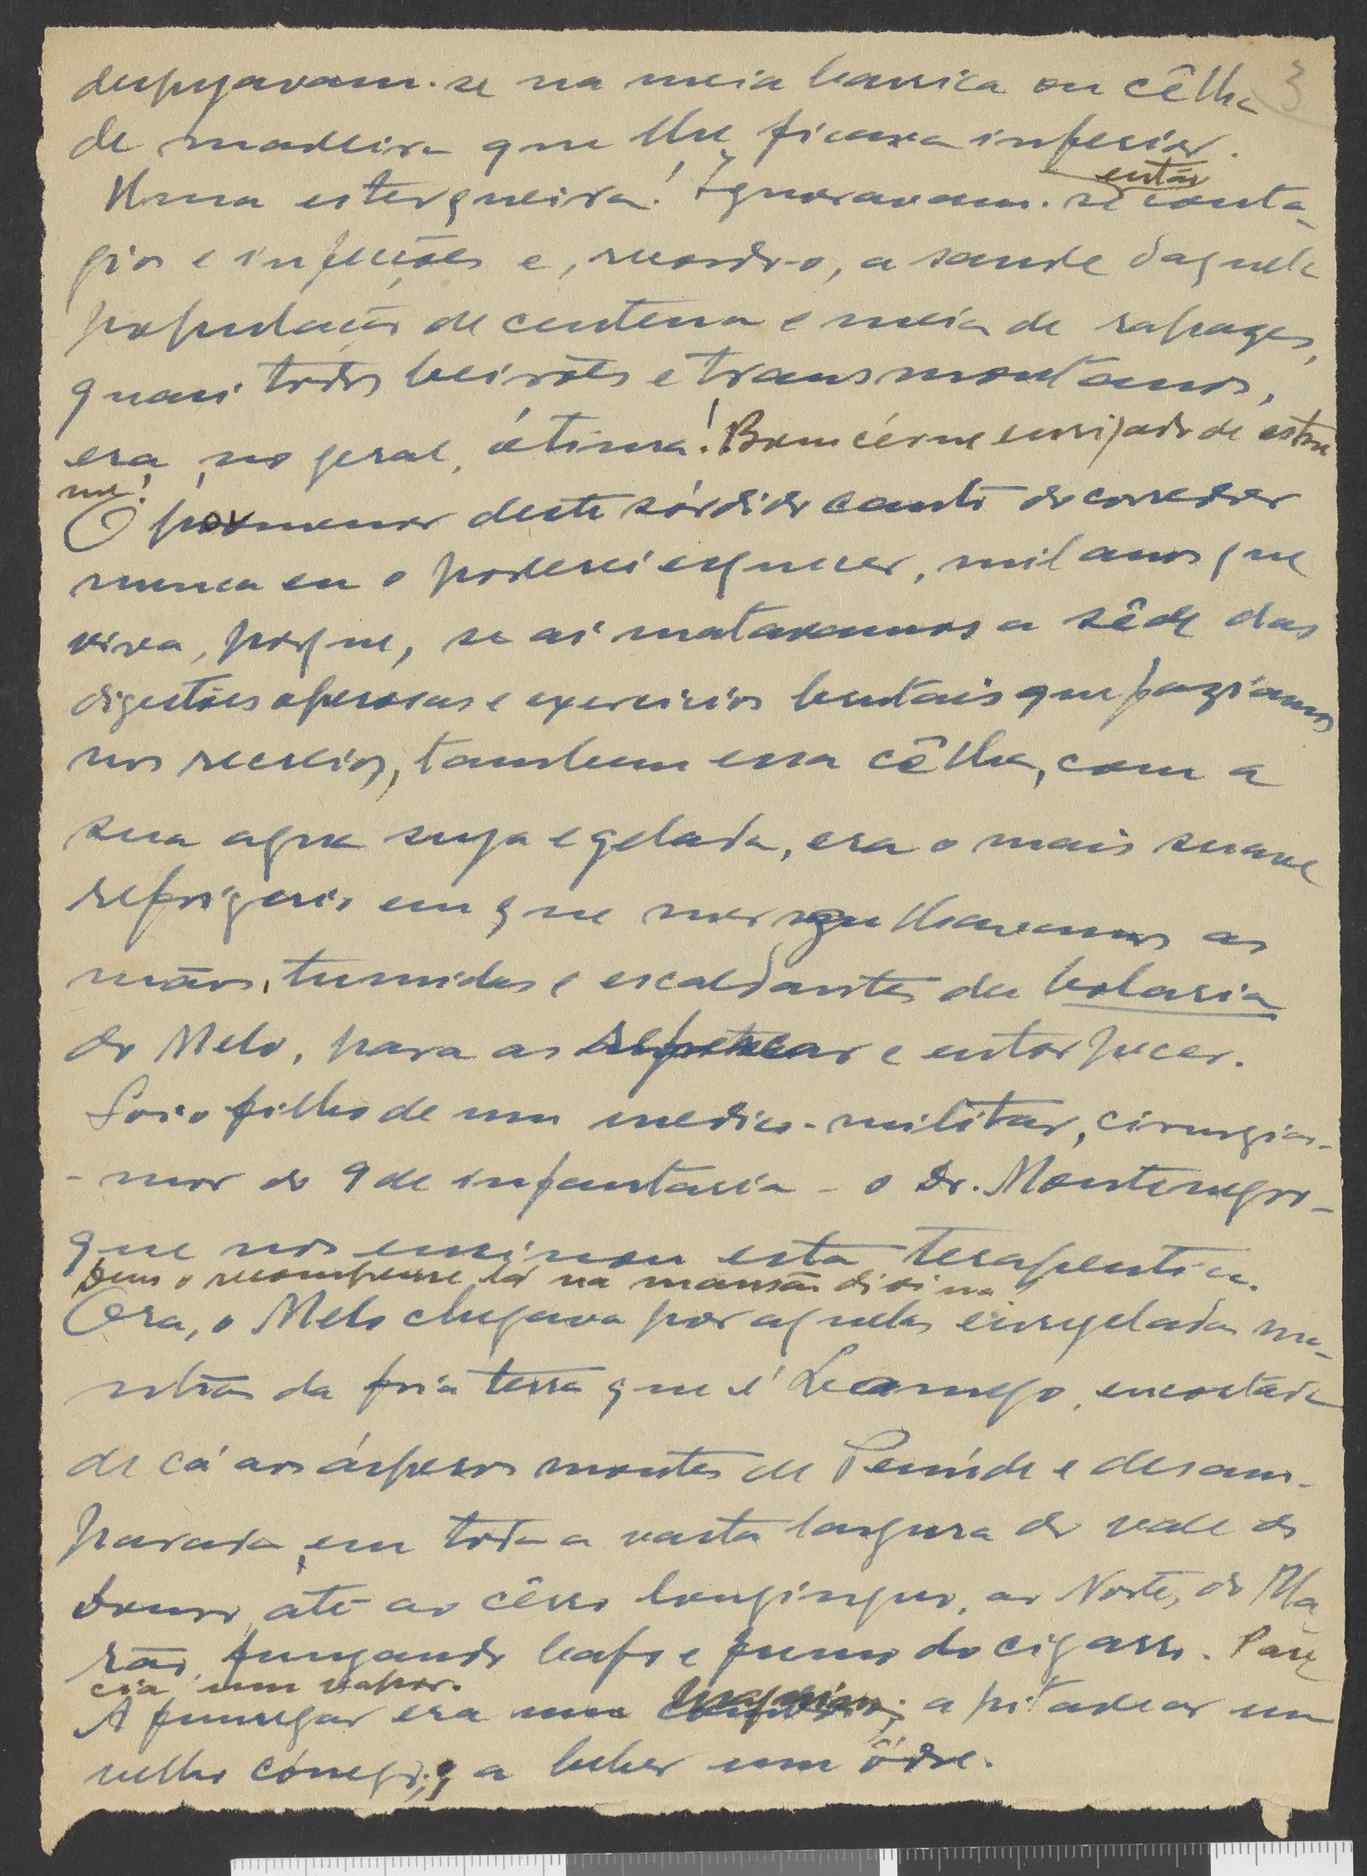 3
despejavam-se na meia barrica ou cêlha
de madeira que lhe ficava inferior.
Uma esterqueira! Ignoravam-se então conta-
gios e infecções e, recordo-o, a saude daquela
população de centena e meia de rapazes,
quasi todos beirões e transmontanos,
era, no geral, ótima! Bom cérne enrijado de estru
me!
O pormenor deste sórdido canto do corredor
nunca eu o poderei esquecer, mil anos que
viva, porque, se aí matavamos a sêde das
digestões operosas e exercicios brutais que faziamos
nos recreios, tambem essa cêlha, com a
sua agua suja e gelada, era o mais suave
refrigerio em que mergulhavamos as
mãos, tumidas e escaldantes da bolaria
do Melo, para as refrescar e entorpecer.
Foi o filho de um medico-militar, cirurgião-
-mor do 9 de infantaria - o Dr. Montenegro -
que nos ensinou esta terapeutica.
Deus o recompense lá na mansão divina
Ora, o Melo chegava por aquelas enregeladas ma-
nhãs da fria terra que é Lamego, encostada
de cá aos ásperos montes de Penúde e desam-
parada, em toda a vasta largura do vale do
Douro, até ao cêrro longinquo, ao Norte, do Ma
rão, fungando bafo e fumo do cigarro. Pare
cia um vapor.
A fumegar era um a pitadear um
velho cónego; a beber um ôdre.